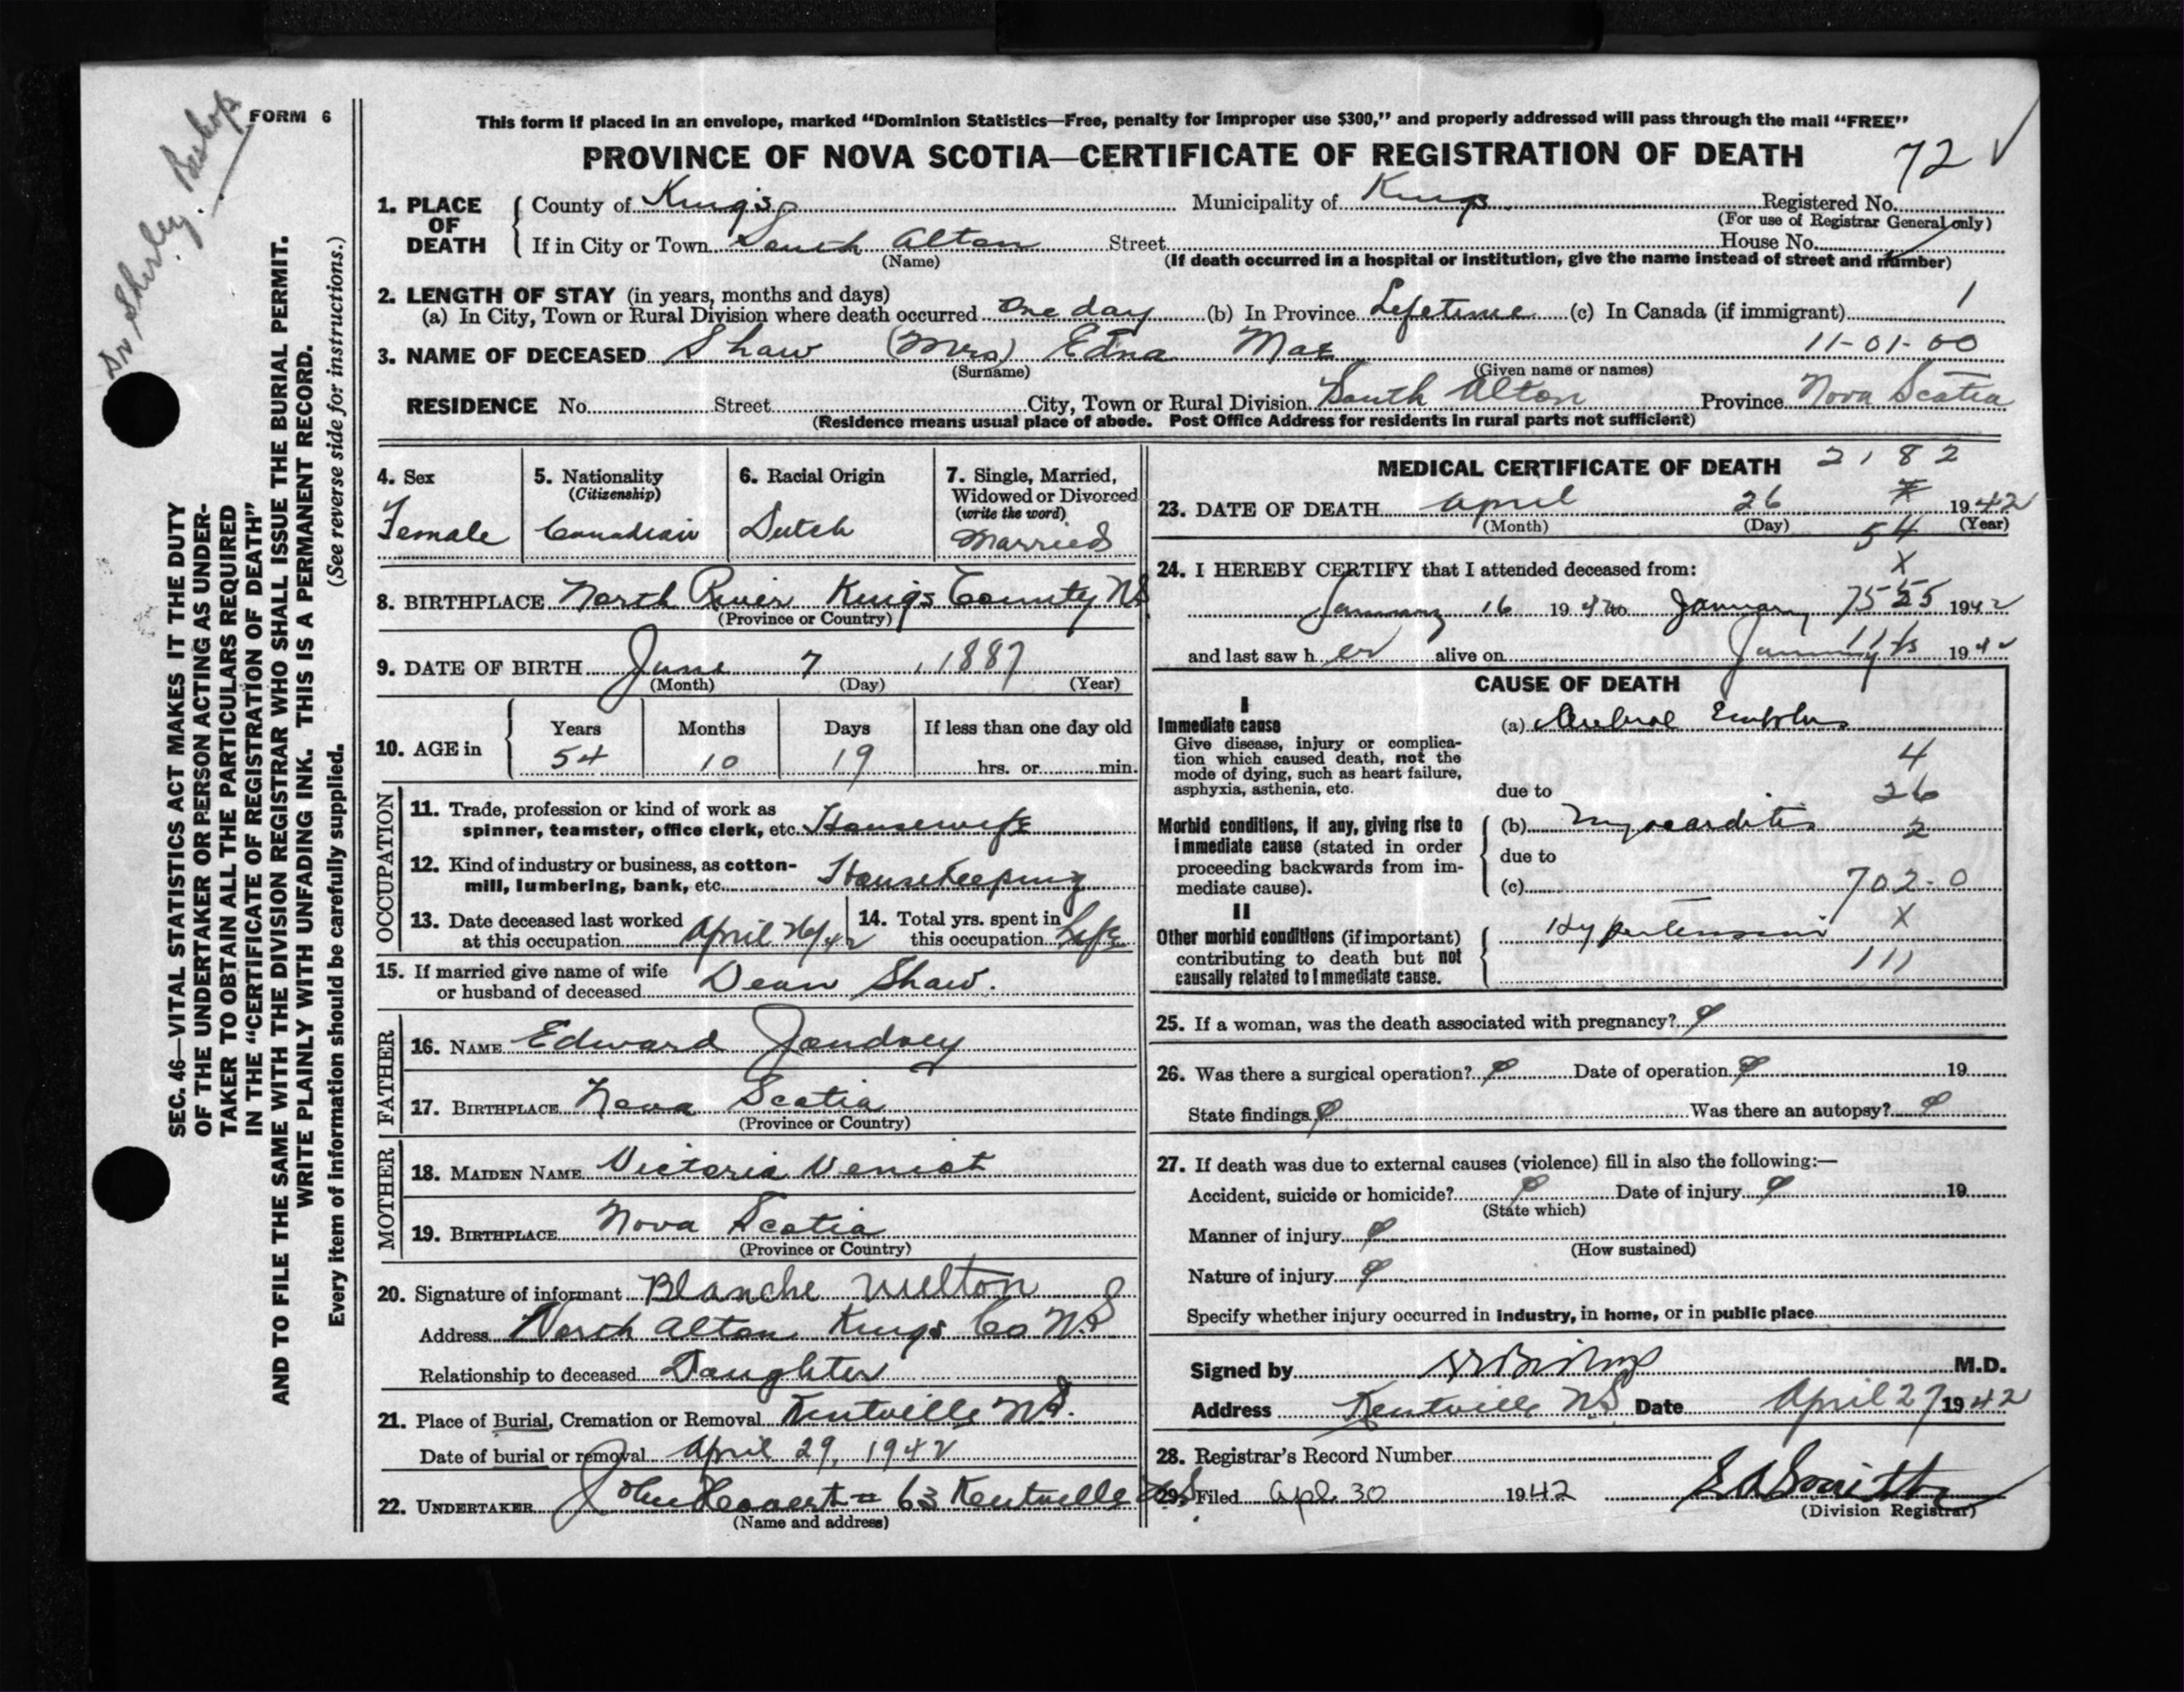 FORM 6
Dr Shirley Bishop
This form if placed in an envelope, marked “Dominion Statistics—Free, penalty for improper use $300,” and properly addressed will pass through the mail “FREE”
PROVINCE OF NOVA SCOTIA—CERTIFICATE OF REGISTRATION OF DEATH
72
1. PLACE OF DEATH
County of Kings Municipality of Kings Registered No.
(For use of Registrar General only)
If in City or Town South Alton Street House No.
(Name) (If death occurred in a hospital or institution, give the name instead of street and number)
2. LENGTH OF STAY (in years, months and days)
(a) In City, Town or Rural Division where death occurred One day (b) In Province Lifetime (c) In Canada (if immigrant) 1
3. NAME OF DECEASED Shaw (Mrs) Edna Mae 11-01-00
(Surname) (Given name or names)
RESIDENCE No. Street City, Town or Rural Division South Alton Province Nova Scotia
(Residence means usual place of abode. Post Office Address for residents in rural parts not sufficient)
4. Sex
Female
5. Nationality
(Citizenship)
Canadian
6. Racial Origin
Dutch
7. Single, Married,
Widowed or Divorced
(write the word)
Married
8. BIRTHPLACE North River Kings County NS
(Province or Country)
9. DATE OF BIRTH June 7, 1887
(Month) (Day) (Year)
10. AGE in
Years Months Days If less than one day old
54 10 19 hrs. or min.
OCCUPATION
11. Trade, profession or kind of work as
spinner, teamster, office clerk, etc. Housewife
12. Kind of industry or business, as cotton-
mill, lumbering, bank, etc. Housekeeping
13. Date deceased last worked
at this occupation April 26/42
14. Total yrs. spent in
this occupation Life
15. If married give name of wife
or husband of deceased Dean Shaw.
FATHER
16. NAME Edward Jaudrey
17. BIRTHPLACE Nova Scotia
(Province or Country)
MOTHER
18. MAIDEN NAME Victoria Veniot
19. BIRTHPLACE Nova Scotia
(Province or Country)
20. Signature of informant Blanche Melton
Address North Alton Kings Co N.S
Relationship to deceased Daughter
21. Place of Burial, Cremation or Removal Kentville N.S.
Date of burial or removal April 29, 1942
22. UNDERTAKER John 63 Kentville N.S.
(Name and address)
MEDICAL CERTIFICATE OF DEATH 2182
23. DATE OF DEATH April 26 1942
(Month) (Day) (Year)
54
X
24. I HEREBY CERTIFY that I attended deceased from:
January 16 19 42 to January 1942
and last saw her alive on January 19 42
CAUSE OF DEATH
I
Immediate cause
Give disease, injury or complica-
tion which caused death, not the
mode of dying, such as heart failure,
asphyxia, asthenia, etc.
(a) Cerebral Embolus
4
due to 26
Morbid conditions, if any, giving rise to
immediate cause (stated in order
proceeding backwards from im-
mediate cause).
(b) Myocarditis 2
due to
(c) 702-0
II
Other morbid conditions (if important)
contributing to death but not
causally related to immediate cause.
Hypertension X
111
25. If a woman, was the death associated with pregnancy?
26. Was there a surgical operation? Date of operation 19
State findings Was there an autopsy?
27. If death was due to external causes (violence) fill in also the following:—
Accident, suicide or homicide? Date of injury 19
(State which)
Manner of injury
(How sustained)
Nature of injury
Specify whether injury occurred in industry, in home, or in public place
Signed by M.D.
Address Kentville NS Date April 27 1942
28. Registrar's Record Number
29. Filed Apl 30 1942 Smith
(Division Registrar)
SEC. 46—VITAL STATISTICS ACT MAKES IT THE DUTY
OF THE UNDERTAKER OR PERSON ACTING AS UNDER-
TAKER TO OBTAIN ALL THE PARTICULARS REQUIRED
IN THE “CERTIFICATE OF REGISTRATION OF DEATH”
AND TO FILE THE SAME WITH THE DIVISION REGISTRAR WHO SHALL ISSUE THE BURIAL PERMIT.
WRITE PLAINLY WITH UNFADING INK. THIS IS A PERMANENT RECORD.
Every item of information should be carefully supplied. (See reverse side for instructions.)